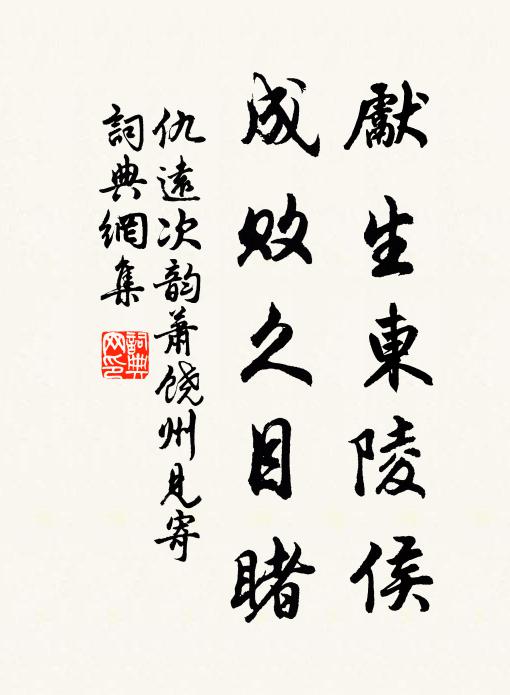 獻生東陵侯
成敗久目睹
仇遠次韵蕭饒州見寄
詞典網集
詞典網印